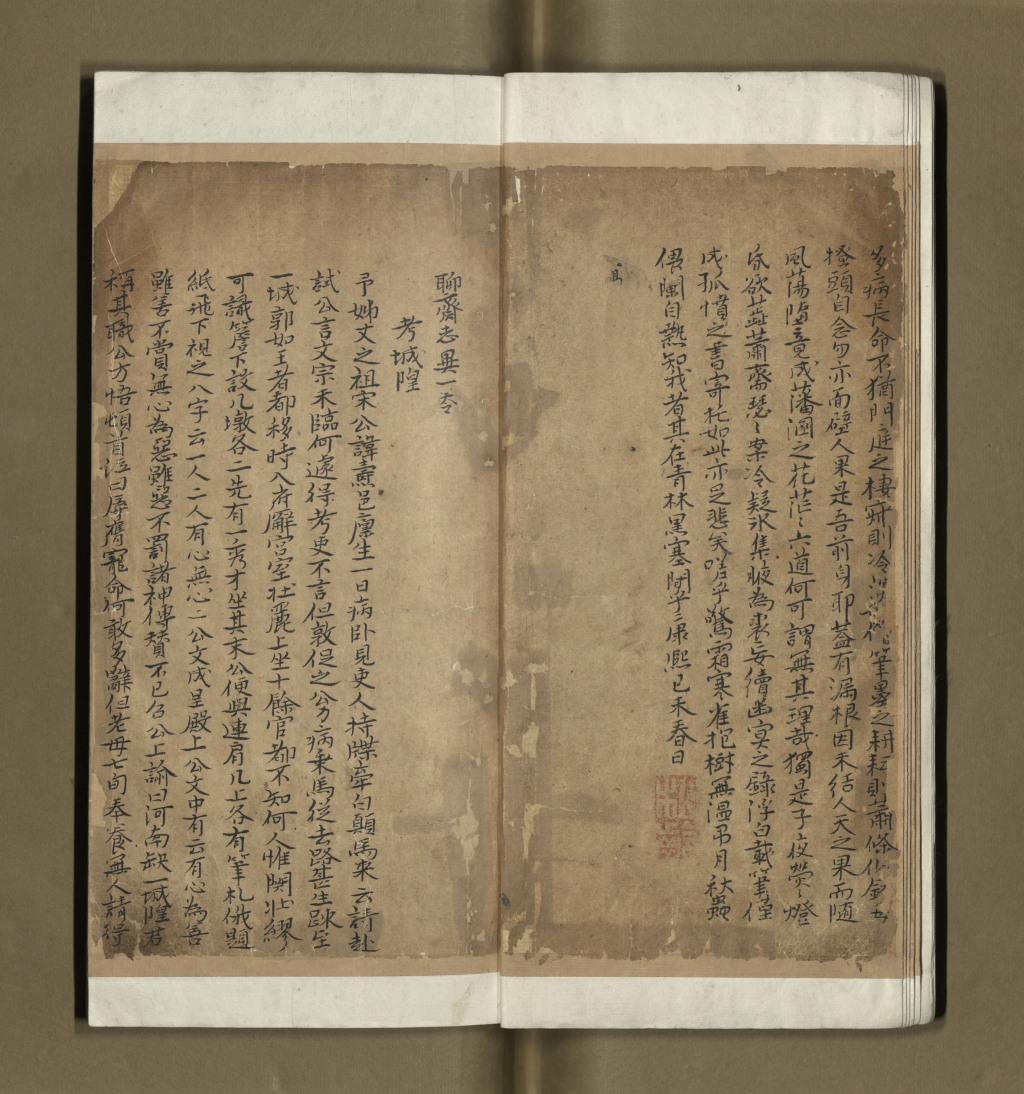 多病長命不猶門庭之棲寂則冷淡如僧筆墨之耕耘則蕭條似鉢每
搔頭自念勿亦面壁人果是吾前身耶葢有漏根因未結人天之果而隨
風蕩墮竟成藩溷之花茫〻六道何可謂無其理哉獨是子夜熒〻燈
昏欲蕋蕭齋瑟〻案冷疑氷集腋為裘妄續幽冥之錄浮白載筆僅
成孤憤之書寄托如此亦足悲矣嗟乎驚霜寒雀抱樹無温吊月秋蟲
偎闌自熱知我者其在青林黑塞間乎康熙已未春日
聊齋志異一卷
考城隍
予姊丈之祖宋公諱燾邑廩生一日病卧見吏人持牒牽白顛馬來云請赴
試公言文宗未臨何遽得考吏不言但敦促之公力病乘馬從去路甚生踈至
一城郭如王者都移時入府廨宮室壮麗上坐十餘官都不知何人惟関壮繆
可識簷下設几墩各二先有一秀才坐其末公便與連肩几上各有筆札俄題
紙飛下視之八字云一人二人有心無心二公文成呈殿上公文中有云有心為善
雖善不賞無心為惡雖惡不罰諸神傳賛不已召公上諭曰河南缺一城隍君
稱其職公方悟頓首泣曰辱膺寵命何敢多辭但老母七旬奉養無人請得